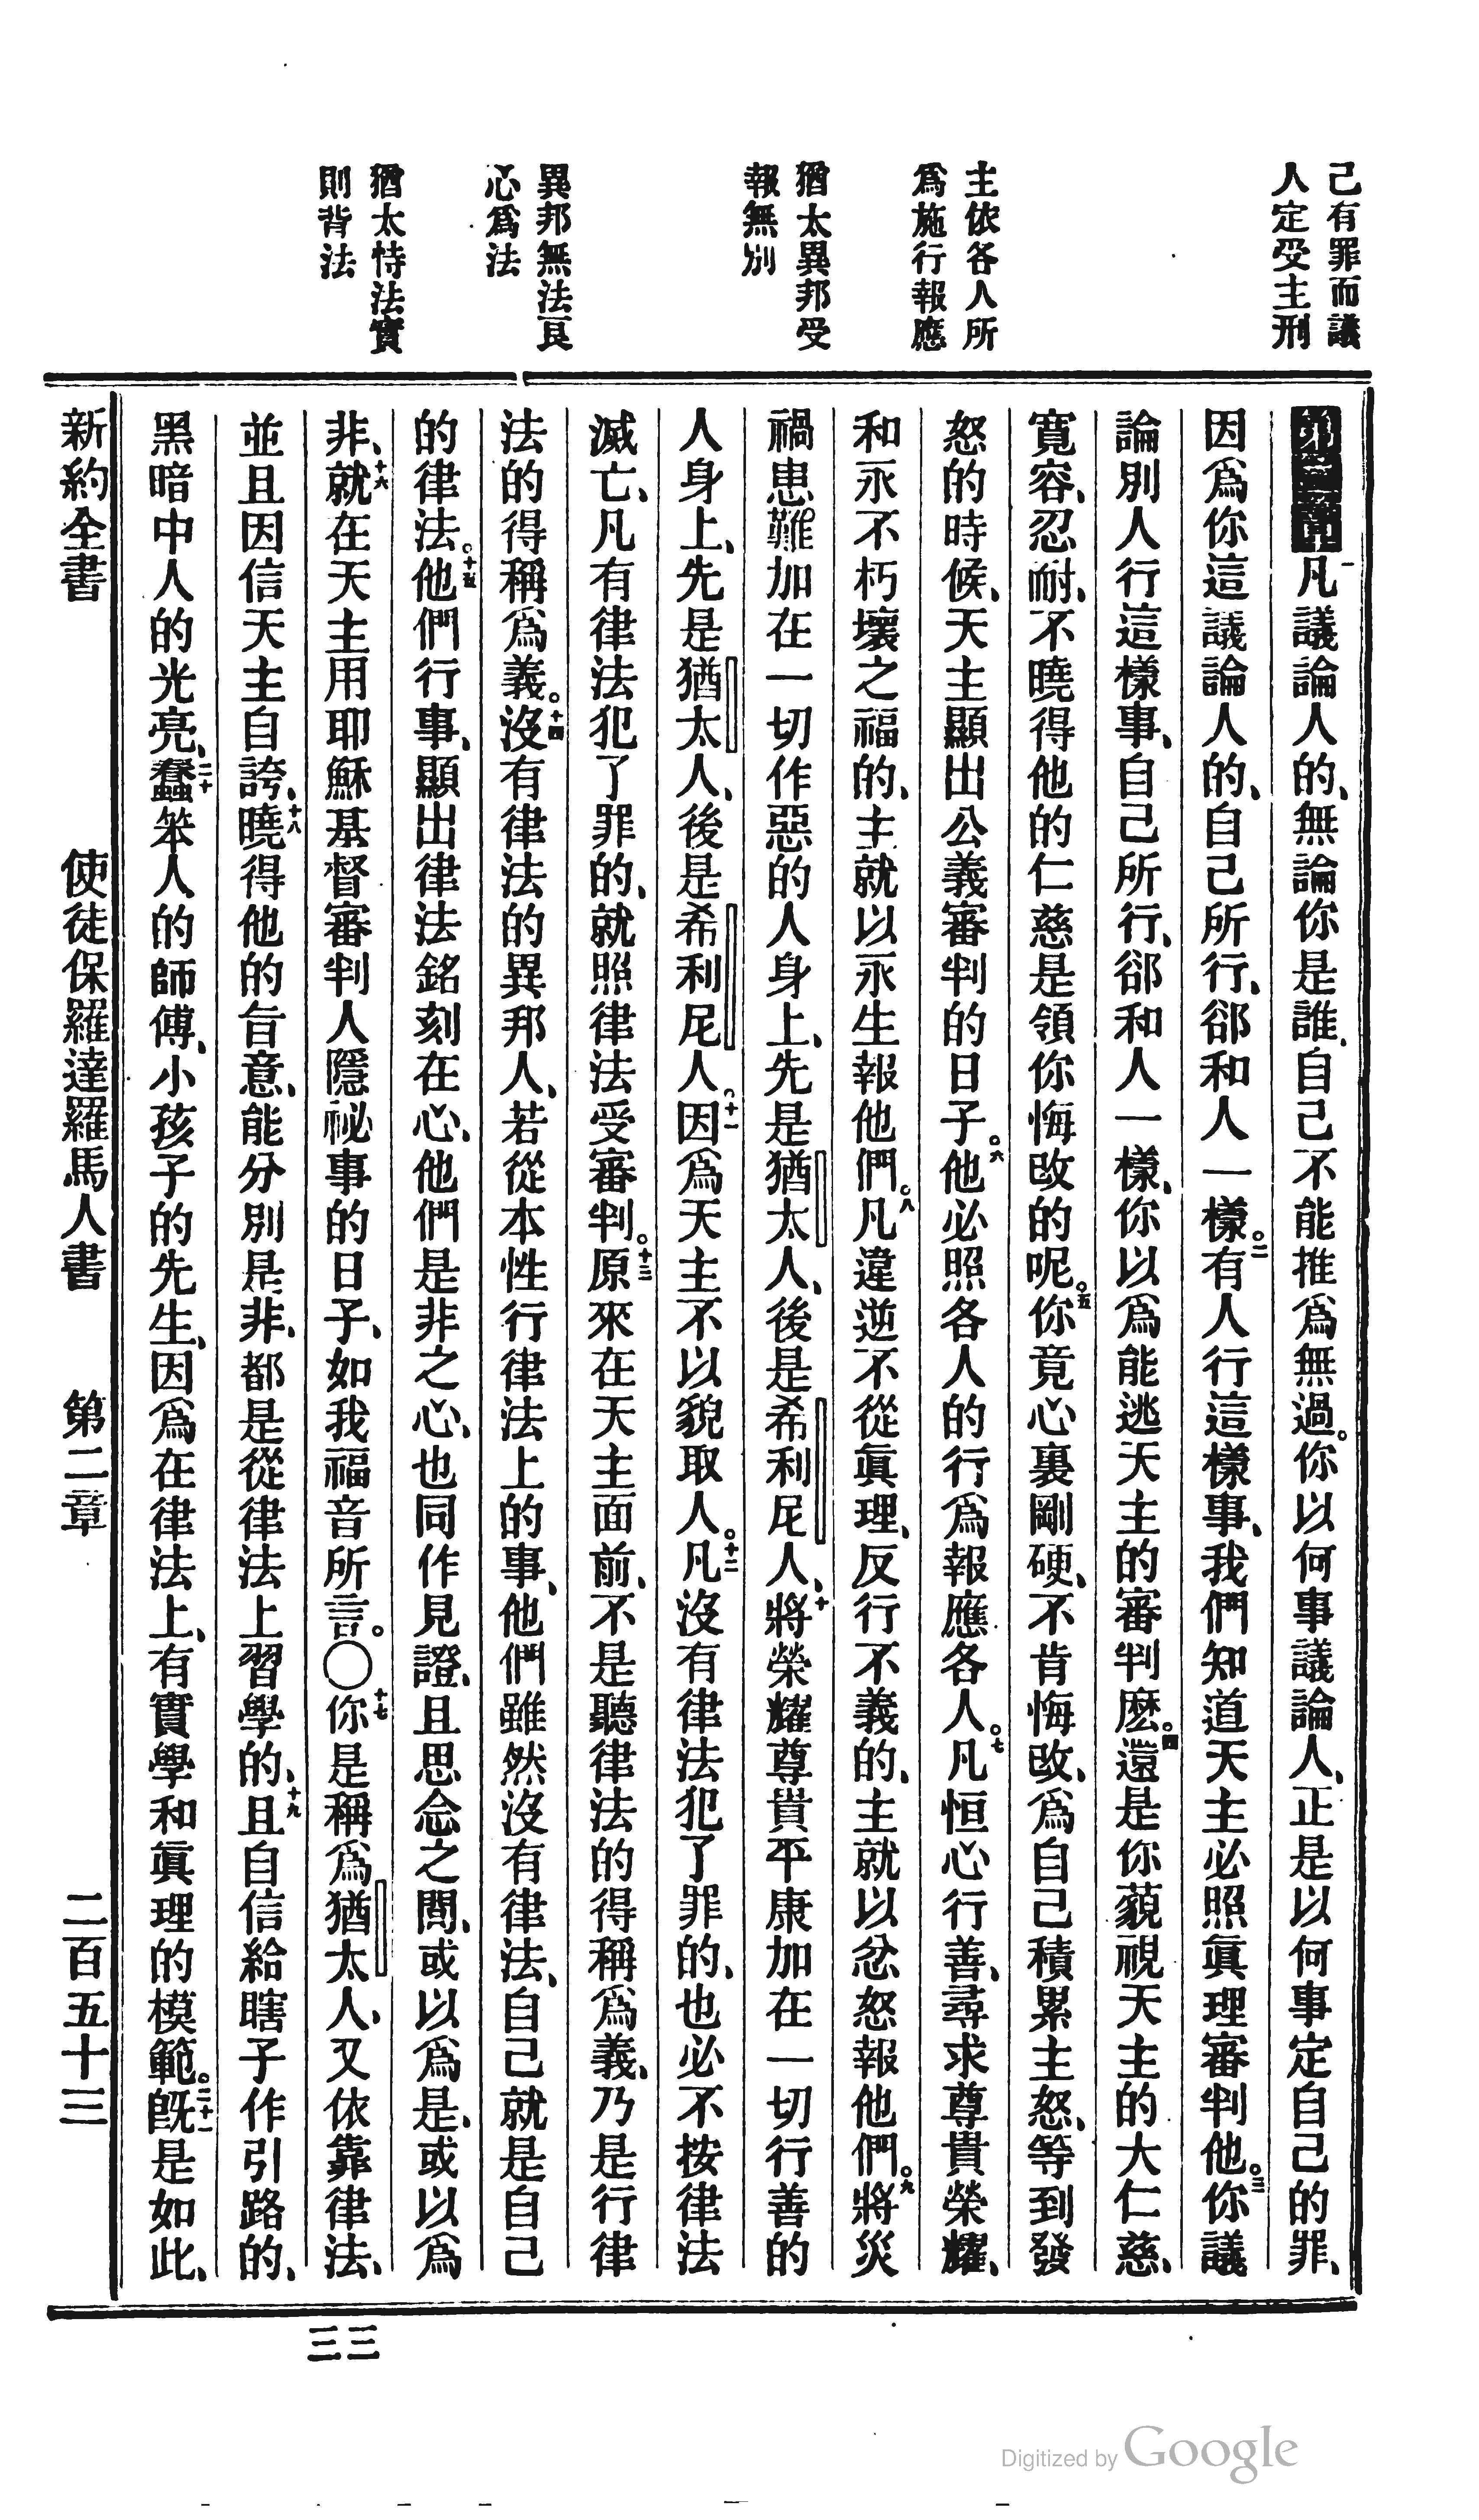 己有罪而議
人定受主刑
主依各人所
爲施行報應
猶太異邦受
報無別
異邦無法良
心爲法
猶太恃法實
則背法
第二章一凡議論人的、無論你是誰、自己不能推爲無過。你以何事議論人、正是以何事定自己的罪、
因爲你這議論人的、自己所行、郤和人一樣。二有人行這樣事、我們知道天主必照眞理審判他。三你議
論別人行這樣事、自己所行、郤和人一樣、你以爲能逃天主的審判麽。四還是你藐視天主的大仁慈、
寬容、忍耐、不曉得他的仁慈是領你悔改的呢。五你竟心裏剛硬、不肯悔改、爲自己積累主怒、等到發
怒的時候、天主顯出公義審判的日子。六他必照各人的行爲報應各人。七凡恒心行善、尋求尊貴榮耀、
和永不朽壞之福的、主就以永生報他們。八凡違逆不從眞理、反行不義的、主就以忿怒報他們。九將災
禍患難加在一切作惡的人身上、先是猶太人、後是希利尼人、十將榮耀尊貴平康加在一切行善的
人身上、先是猶太人、後是希利尼人。十一因爲天主不以貌取人。十二凡沒有律法犯了罪的、也必不按律法
滅亡、凡有律法犯了罪的、就照律法受審判。十三原來在天主面前、不是聽律法的得稱爲義、乃是行律
法的得稱爲義。十四沒有律法的異邦人、若從本性行律法上的事、他們雖然沒有律法、自己就是自己
的律法。十五他們行事、顯出律法銘刻在心、他們是非之心、也同作見證、且思念之間、或以爲是、或以爲
非、十六就在天主用耶穌基督審判人隱祕事的日子、如我福音所言。〇十七你是稱爲猶太人、又依靠律法、
並且因信天主自誇、十八曉得他的旨意、能分別是非、都是從律法上習學的、十九且自信給瞎子作引路的、
黑暗中人的光亮、二十蠢笨人的師傅、小孩子的先生、因爲在律法上、有實學和眞理的模範。二十一旣是如此、
新約全書 使徒保羅達羅馬人書 第二章 二百五十三
三三
Digitized by Google